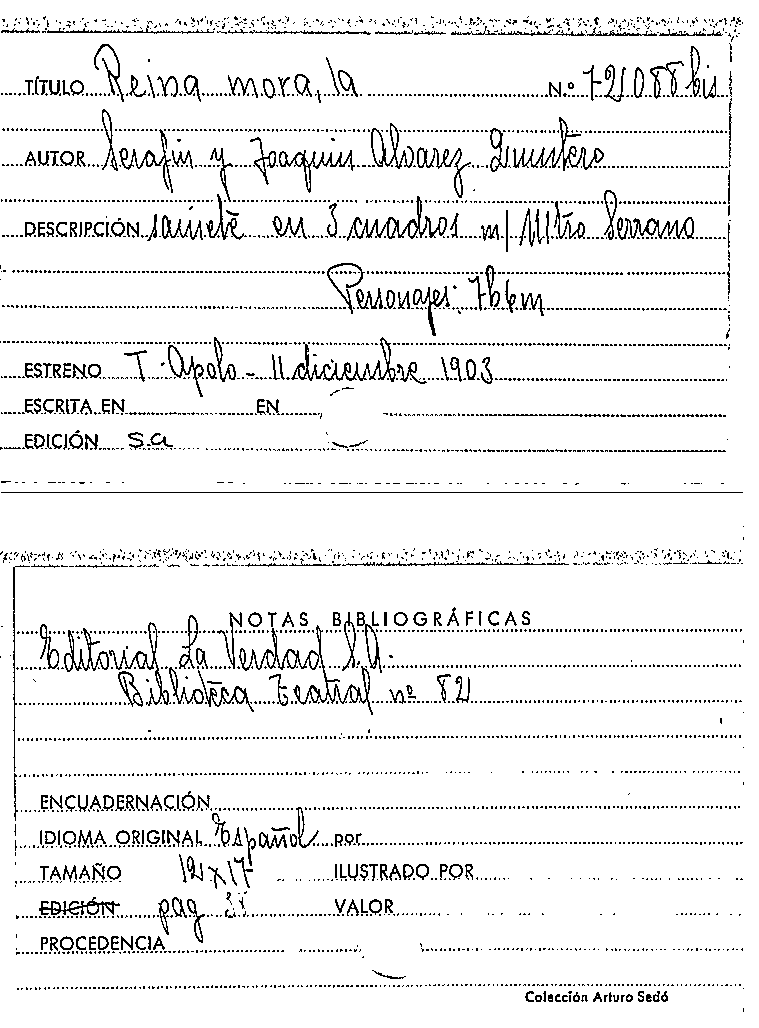 TÍTULO Reina mora, la N.º 72088 bis
AUTOR Serafin y Joaquin Alvarez Quintero
DESCRIPCIÓN sainete en 3 cuadros m/ Mtro Serrano
Personajes: 7h6m
ESTRENO T. Apolo - 11 diciembre 1903
ESCRITA EN EN
EDICIÓN s.a
NOTAS BIBLIOGRÁFICAS
Editorial La Verdad S.A.
Biblioteca Teatral nº 82
ENCUADERNACIÓN
IDIOMA ORIGINAL Español por
TAMAÑO 12x17 ILUSTRADO POR
EDICIÓN pag VALOR
PROCEDENCIA
Colección Arturo Sedó